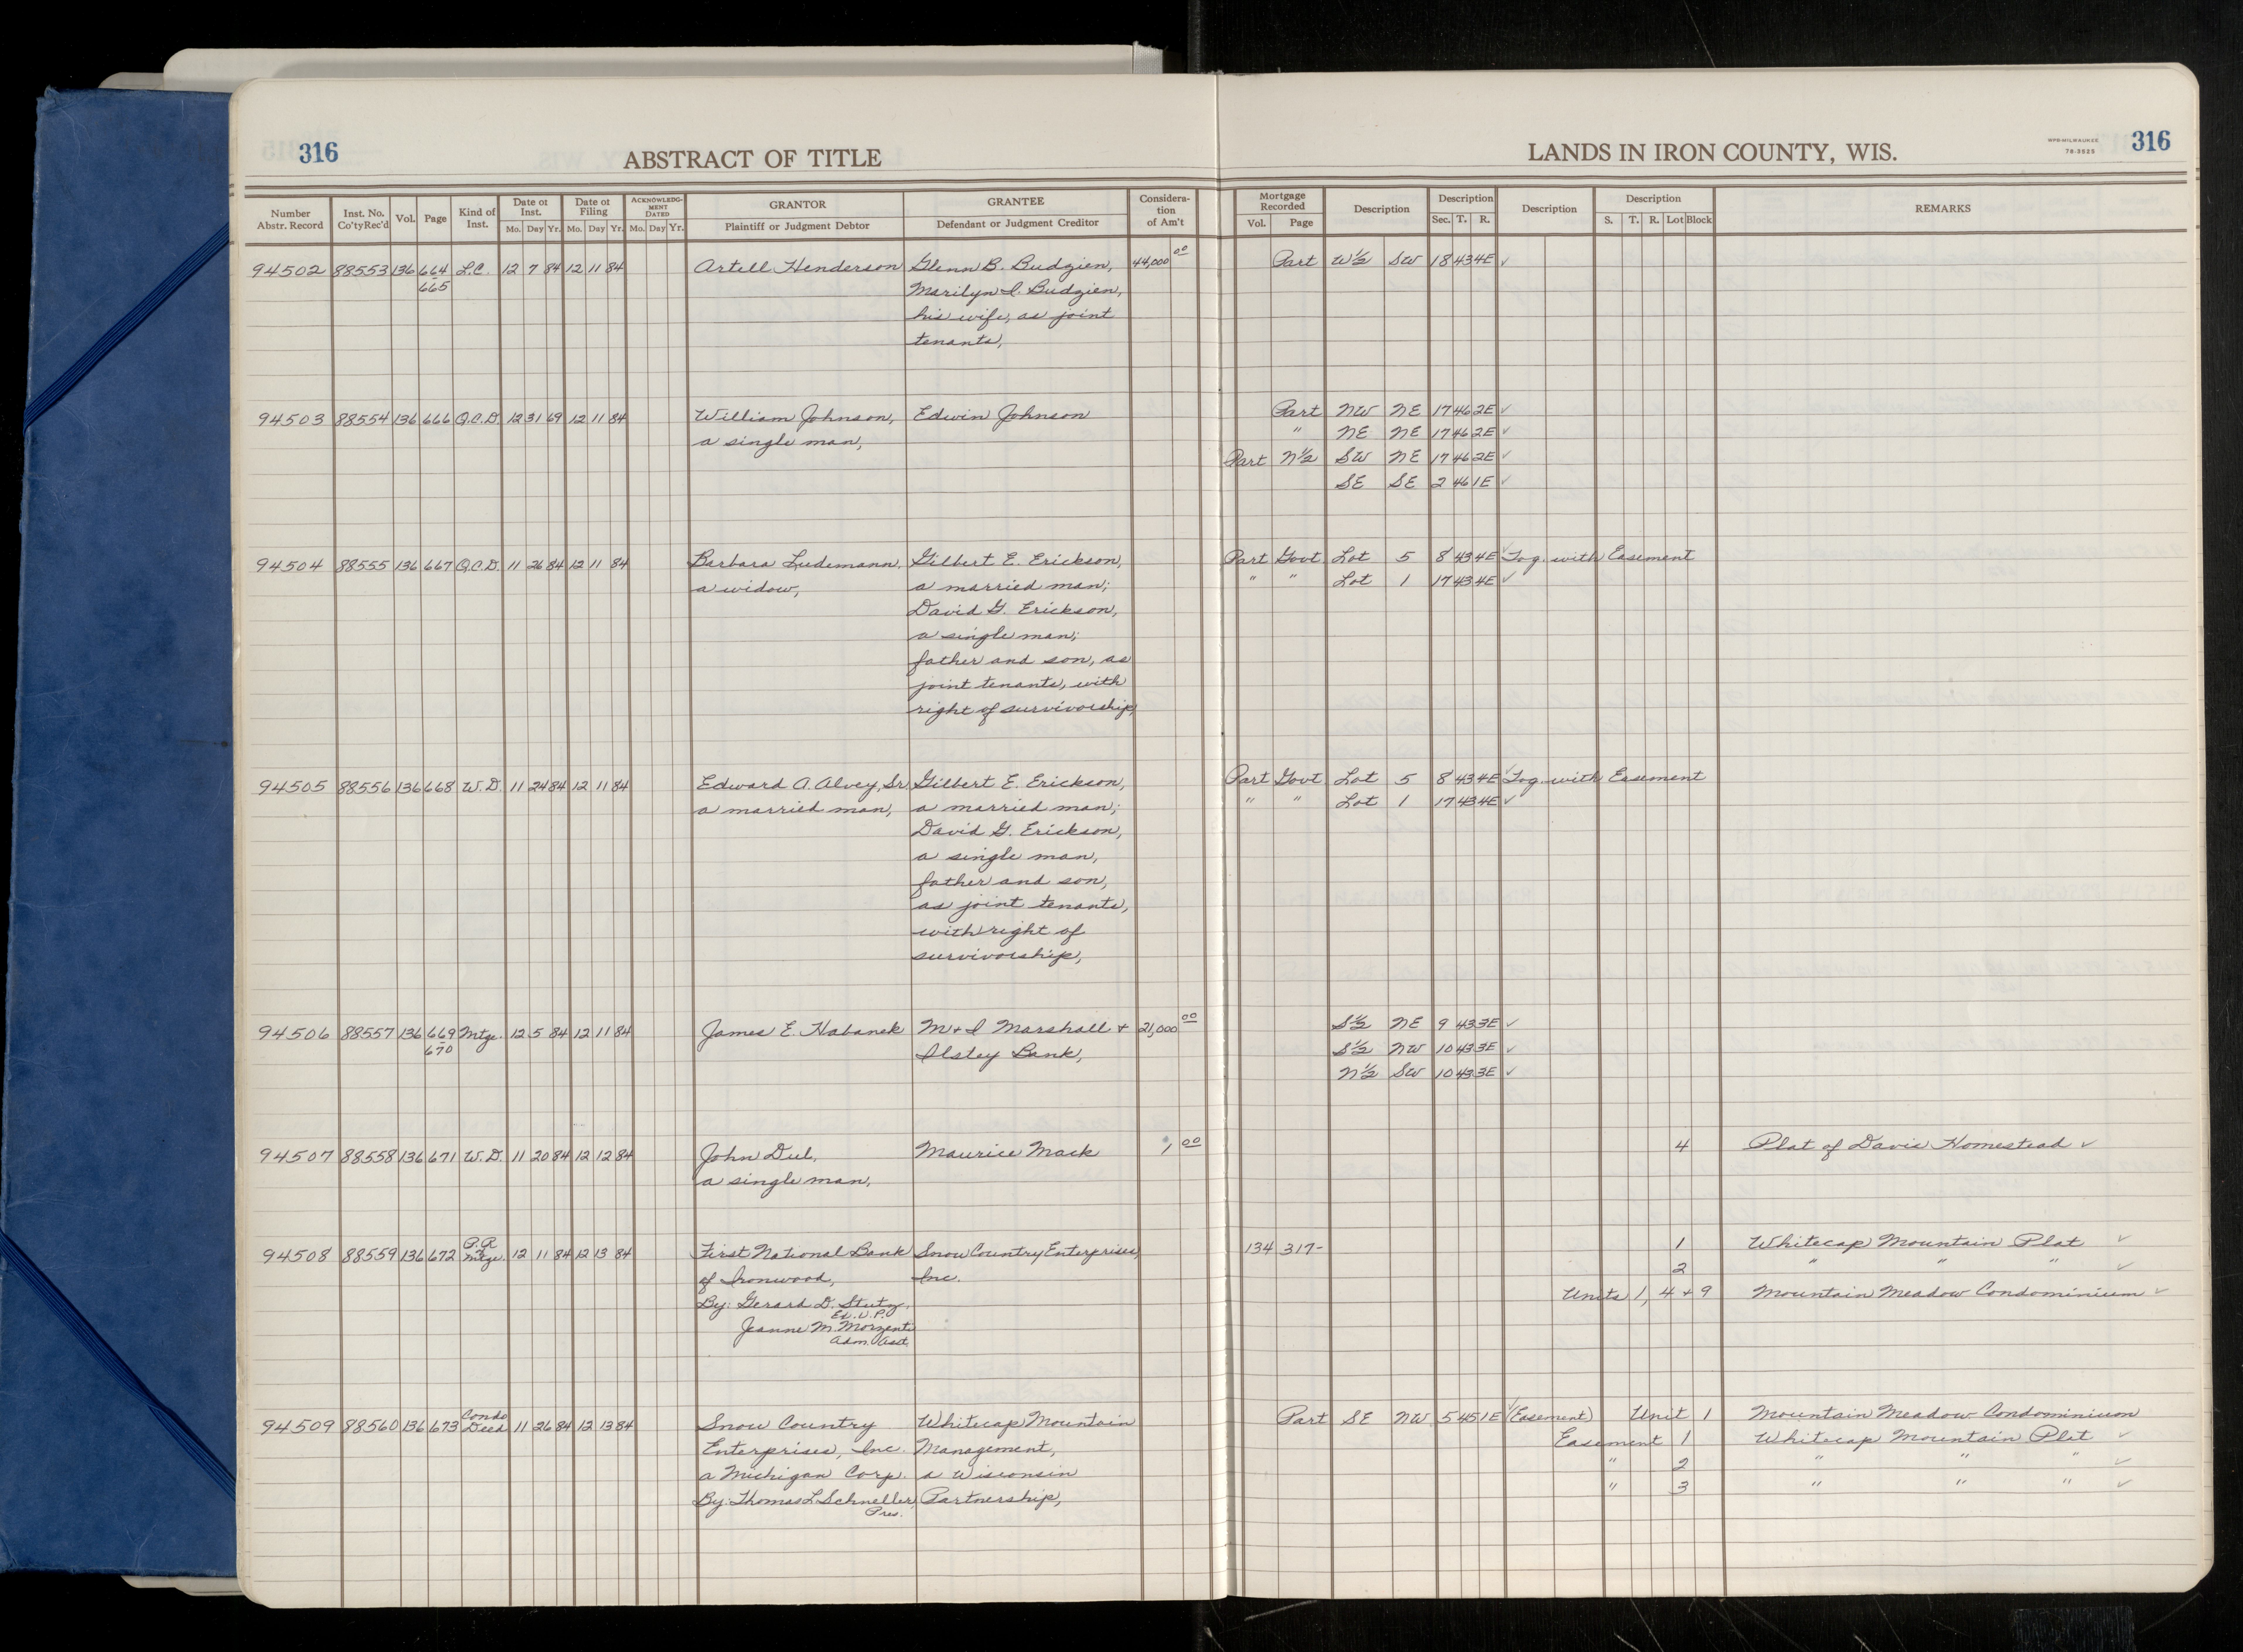 316
ABSTRACT OF TITLE
LANDS IN IRON COUNTY, WIS.
WPB-MILWAUKEE
78-3525
316
Number Abstr. Record | Inst. No. Co'ty Rec'd | Vol. | Page | Kind of Inst. | Date of Inst. Mo. Day Yr. | Date of Filing Mo. Day Yr. | ACKNOWLEDGMENT DATED Mo. Day Yr. | GRANTOR Plaintiff or Judgment Debtor | GRANTEE Defendant or Judgment Creditor | Consideration of Am't | Mortgage Recorded Vol. Page | Description | Description Sec. T. R. | Description | Description S. T. R. Lot Block | REMARKS
94502 88553 136 664 L.C. 12 7 84 12 11 84 Artell Henderson Glenn B. Budzien, 44,000 00 Part W½ SW 18 43 4E ✓
665 Marilyn I. Budzien,
his wife, as joint
tenants,
94503 88554 136 666 Q.C.D. 12 31 69 12 11 84 William Johnson, Edwin Johnson Part NW NE 17 46 2E ✓
a single man, " NE NE 17 46 2E ✓
Part N½ SW NE 17 46 2E ✓
SE SE 2 46 1E ✓
94504 88555 136 667 Q.C.D. 11 26 84 12 11 84 Barbara Ludemann, Gilbert E. Erickson, Part Govt Lot 5 8 43 4E ✓ Tog. with Easement
a widow, a married man; " " Lot 1 17 43 4E ✓
David G. Erickson,
a single man;
father and son, as
joint tenants, with
right of survivorship,
94505 88556 136 668 W.D. 11 24 84 12 11 84 Edward A. Alvey, Sr. Gilbert E. Erickson, Part Govt Lot 5 8 43 4E ✓ Tog. with Easement
a married man, a married man; " " Lot 1 17 43 4E ✓
David G. Erickson,
a single man,
father and son,
as joint tenants,
with right of
survivorship,
94506 88557 136 669 Mtge. 12 5 84 12 11 84 James E. Habanek M+I Marshall + 21,000 00 S½ NE 9 43 3E ✓
670 Ilsley Bank, S½ NW 10 43 3E ✓
N½ SW 10 43 3E ✓
94507 88558 136 671 W.D. 11 20 84 12 12 84 John Dul, Maurice Mack 1 00 4 Plat of Davis Homestead ✓
a single man,
94508 88559 136 672 P.R. Mtge. 12 11 84 12 13 84 First National Bank Snow Country Enterprises, 134 317- 1 Whitecap Mountain Plat ✓
of Ironwood, Inc. 2 " " " ✓
By: Gerard D. Stutz, Units 1, 4 + 9 Mountain Meadow Condominium ✓
Ex. V. P.
Jeanne M. Morzenti
Adm. Asst.
94509 88560 136 673 Condo Deed 11 26 84 12 13 84 Snow Country Whitecap Mountain Part SE NW 5 45 1E ✓ (Easement) Unit 1 Mountain Meadow Condominium
Enterprises, Inc. Management, Easement 1 Whitecap Mountain Plat ✓
a Michigan Corp. a Wisconsin " 2 " " " ✓
By: Thomas L. Schneller, Partnership, " 3 " " " ✓
Pres.